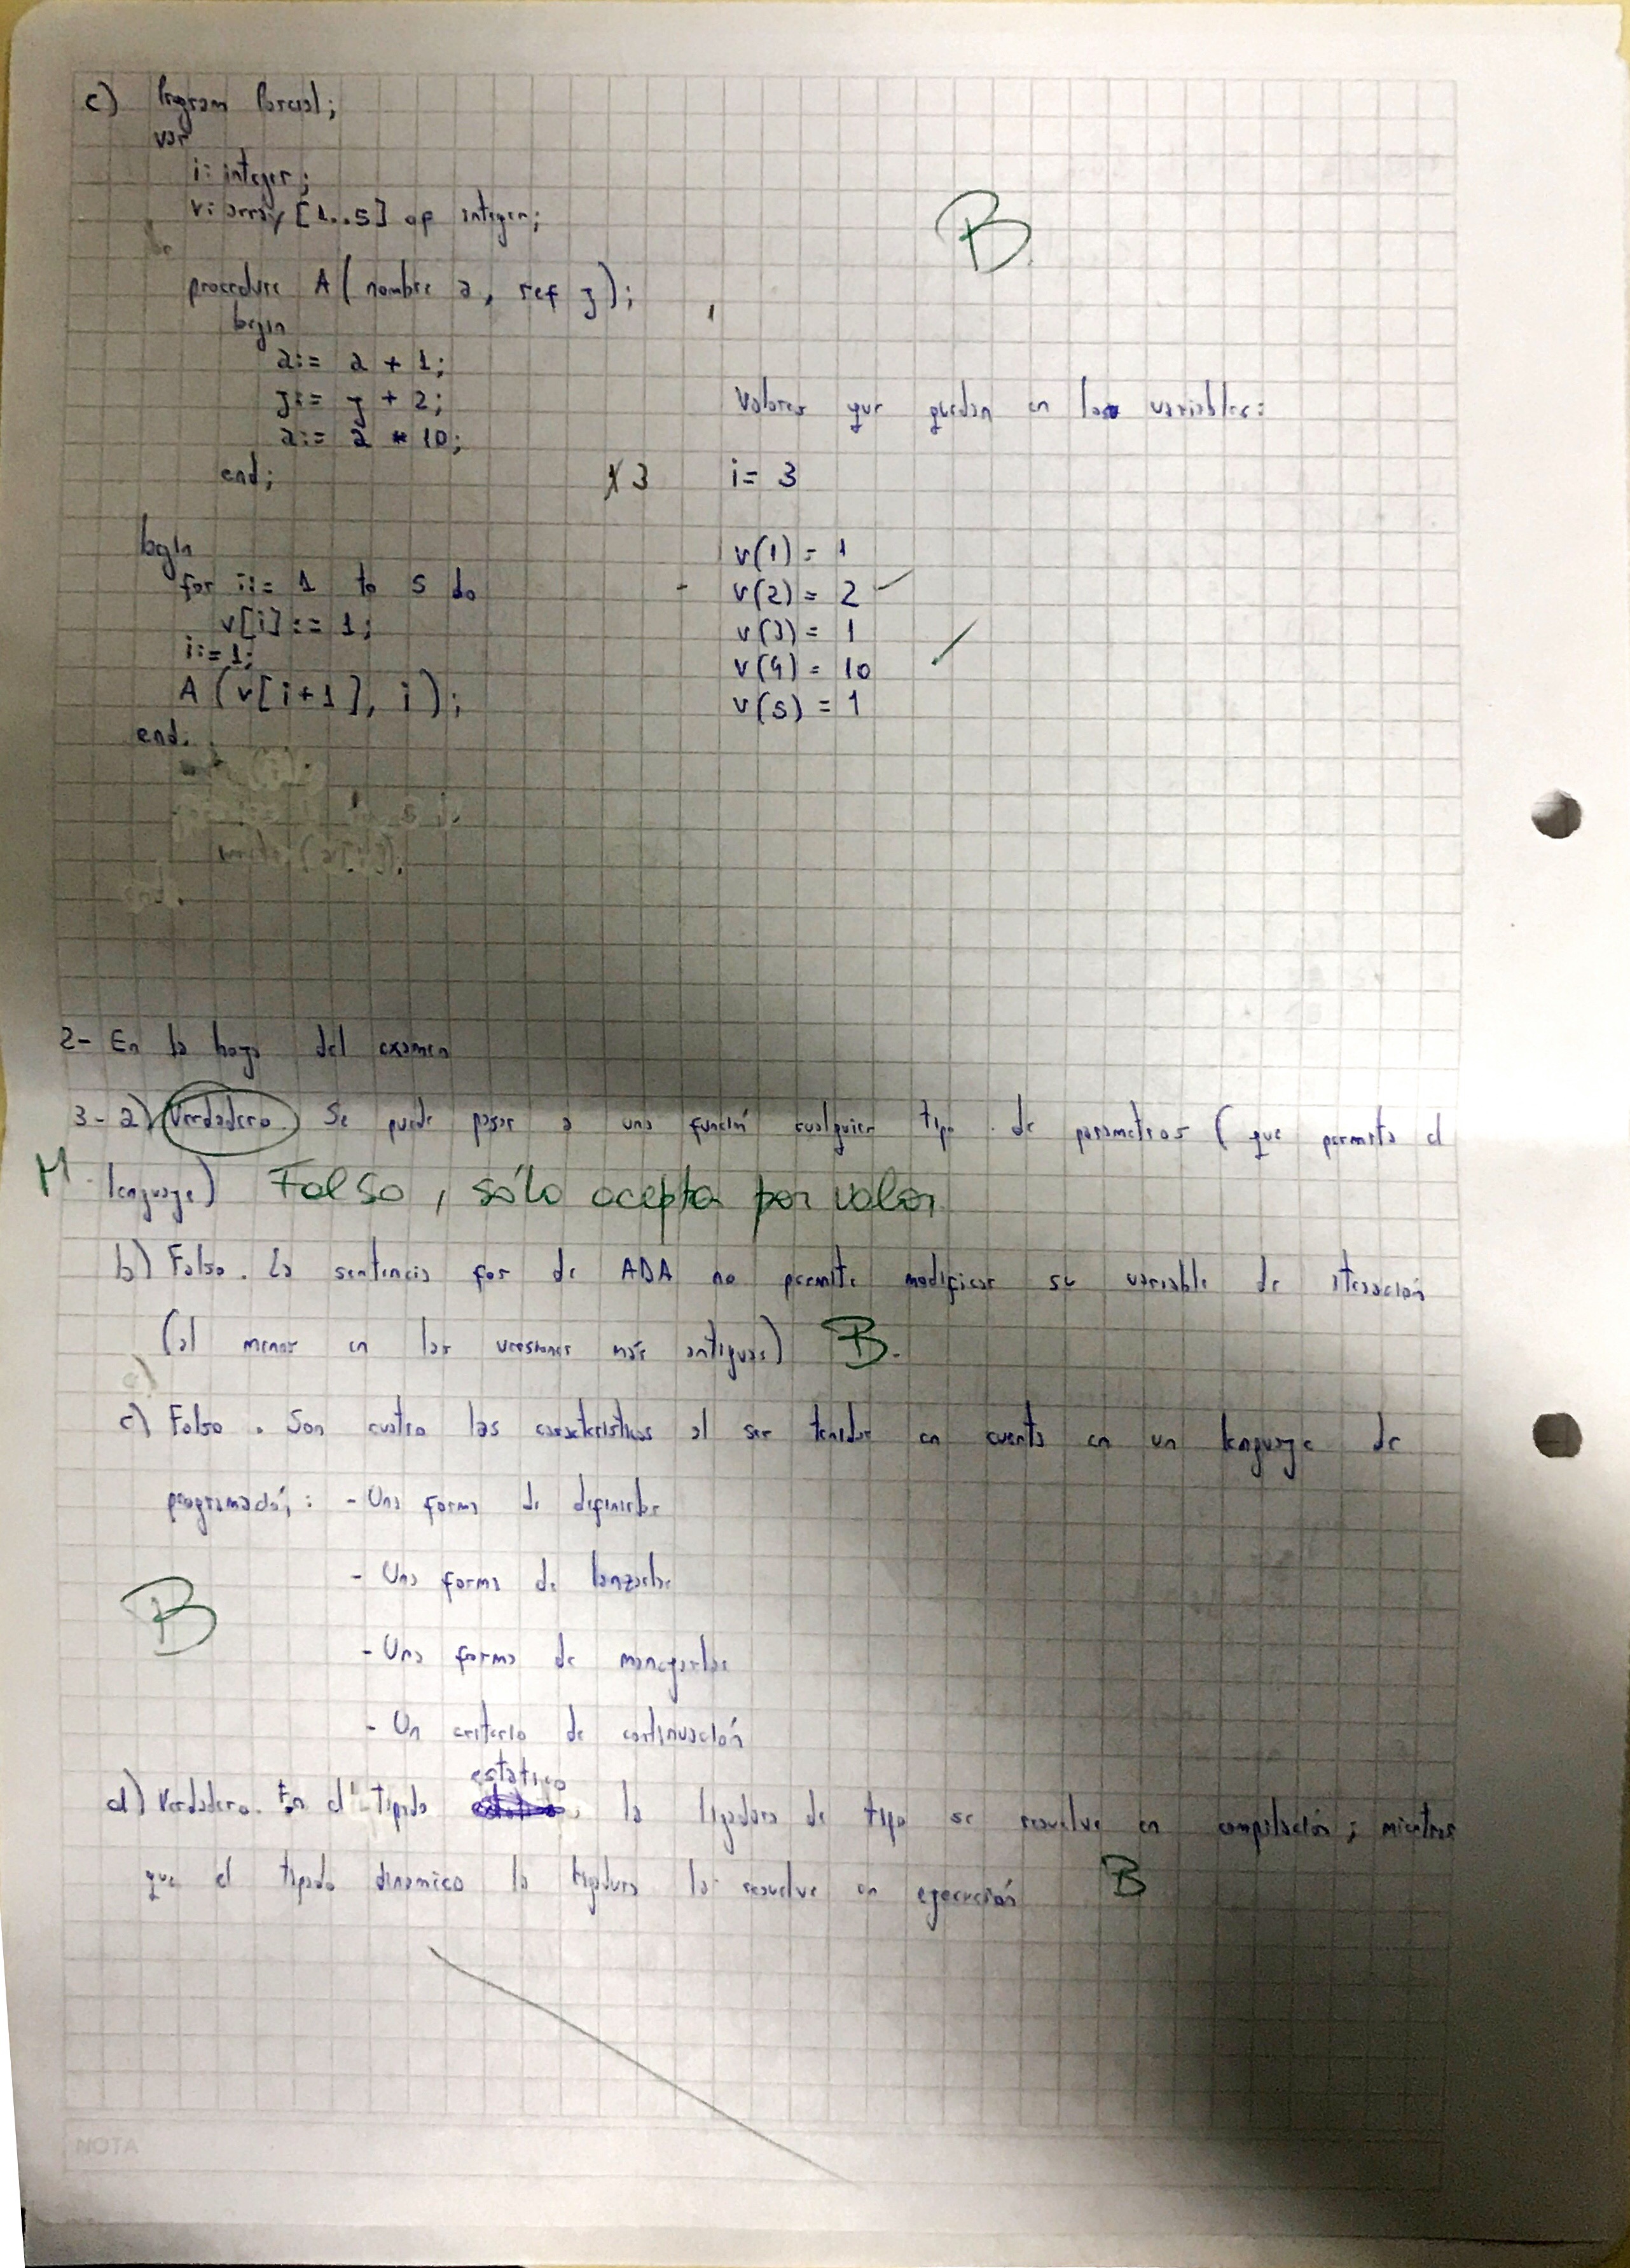 c) Program Parcial;
var
i: integer;
v: array [1..5] of integer;
procedure A ( nombre a, ref y );
begin
a:= a + 1;
y:= y + 2;
a:= a * 10;
end;
begin
for i:= 1 to 5 do
v[i] := 1;
i:= 1;
A ( v[i+1], i );
end.
B
Valores que quedan en las variables:
3 i= 3
v(1) = 1
v(2) = 2
v(3) = 1
v(4) = 10
v(5) = 1
2- En la hoja del examen
3- a) Verdadero. Se puede pasar a una función cualquier tipo de parametros ( que permita el
M lenguaje) Falso, sólo acepta por valor
b) Falso. La sentencia for de ADA no permite modificar su variable de iteración
(al menos en las versiones más antiguas) B.
c) Falso. Son cuatro las características al ser tenidas en cuenta en un lenguaje de
programación: - Una forma de definirlas
- Una forma de lanzarlas
B
- Una forma de manejarlas
- Un criterio de continuación
estatico
d) Verdadero. En el tipado la ligadura de tipo se resuelve en compilación; mientras
que el tipado dinamico la ligadura la resuelve en ejecución B
NOTA